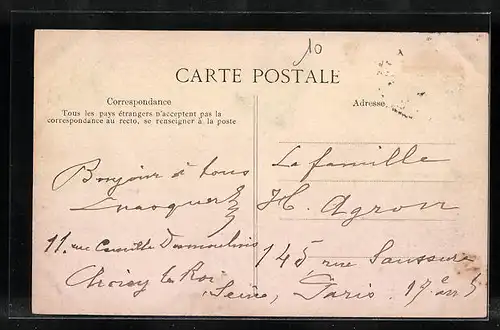 10
CARTE POSTALE
Correspondance
Tous les pays étrangers n'acceptent pas la
correspondance au recto, se renseigner à la poste
Adresse
Bonjour à tous
11, rue Camille Desmoulins
Choisy le Roi
Seine
La famille
H. Agron
145 rue Saussure
Paris. 17e